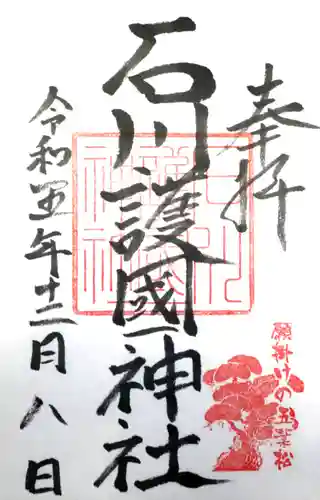 奉拝
石川護國神社
令和五年十二月八日
願掛けの五葉松